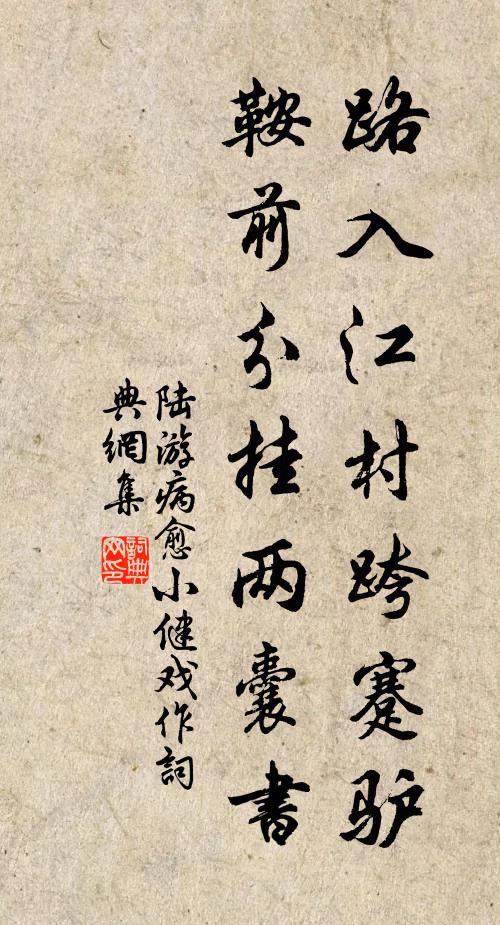 路入江村跨蹇驴
鞍前分挂两囊書
陆游病愈小健戏作詞
典網集
詞典
网印